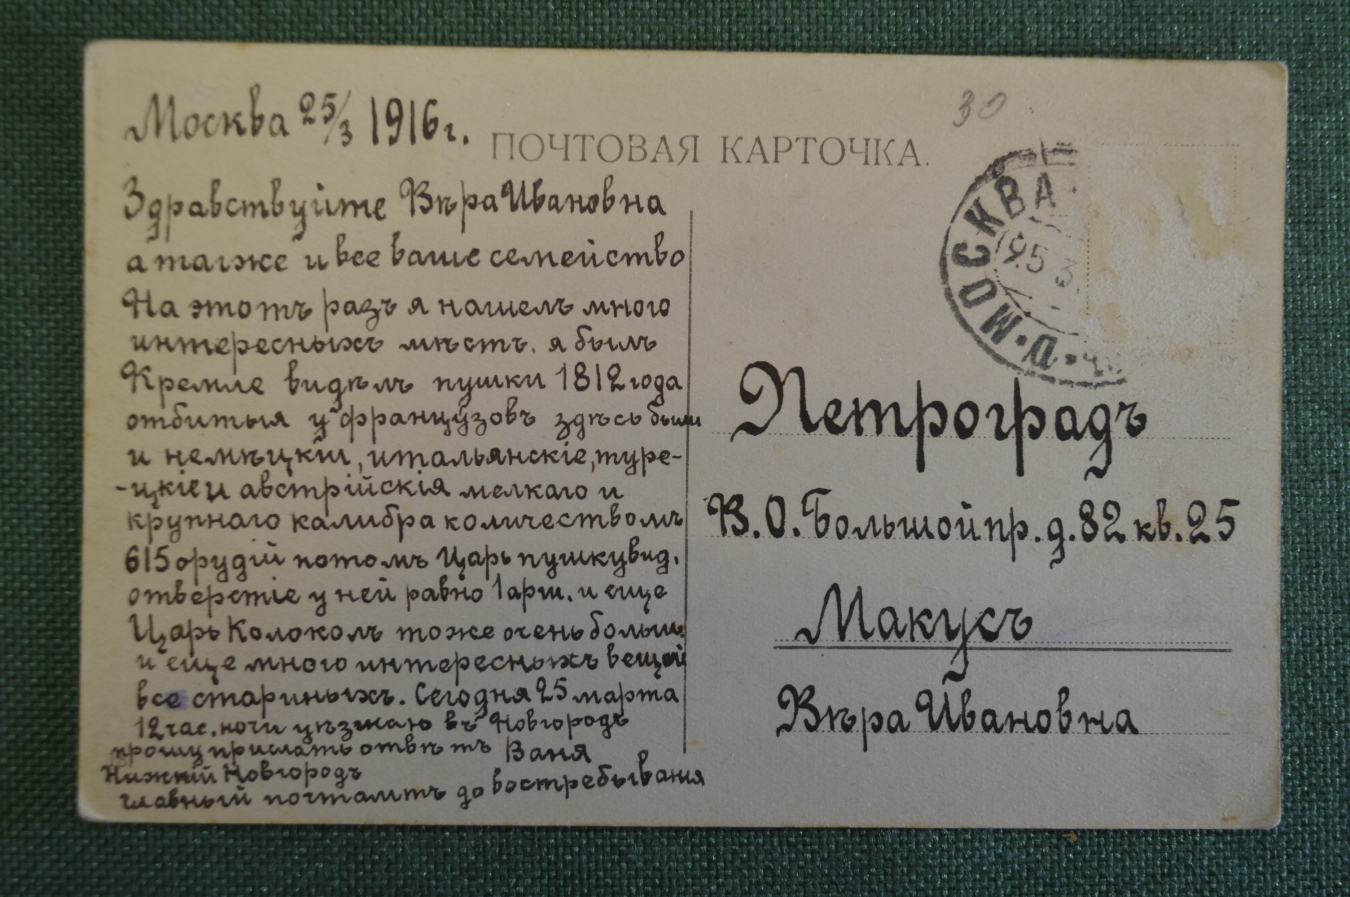 Москва 25/3 1916 г.
ПОЧТОВАЯ КАРТОЧКА.
30
Здравствуйте Вѣра Ивановна
а также и все ваше семейство
На этотъ разъ я нашелъ много
интересныхъ мѣстъ. я былъ
Кремле видѣлъ пушки 1812 года
отбитыя у французовъ здѣсь были
и немѣцкiи, итальянскiе, туре-
-цкiе и австрiйскiя мелкаго и
крупнаго калибра количествомъ
615 орудiй потомъ Царь пушку вид.
отверстiе у ней равно 1 арш. и еще
Царь Колоколъ тоже очень больш.
и еще много интересныхъ вещей
все стариныхъ. Сегодня 25 марта
12 час. ночи уѣзжаю въ Новгородъ
прошу прислать отвѣтъ Ваня
Нижнiй Новгородъ
главный почтамтъ до востребыванiя
МОСКВА
25 3
Петроградъ
В.О. Большой пр. д. 82 кв. 25
Макусъ
Вѣра Ивановна